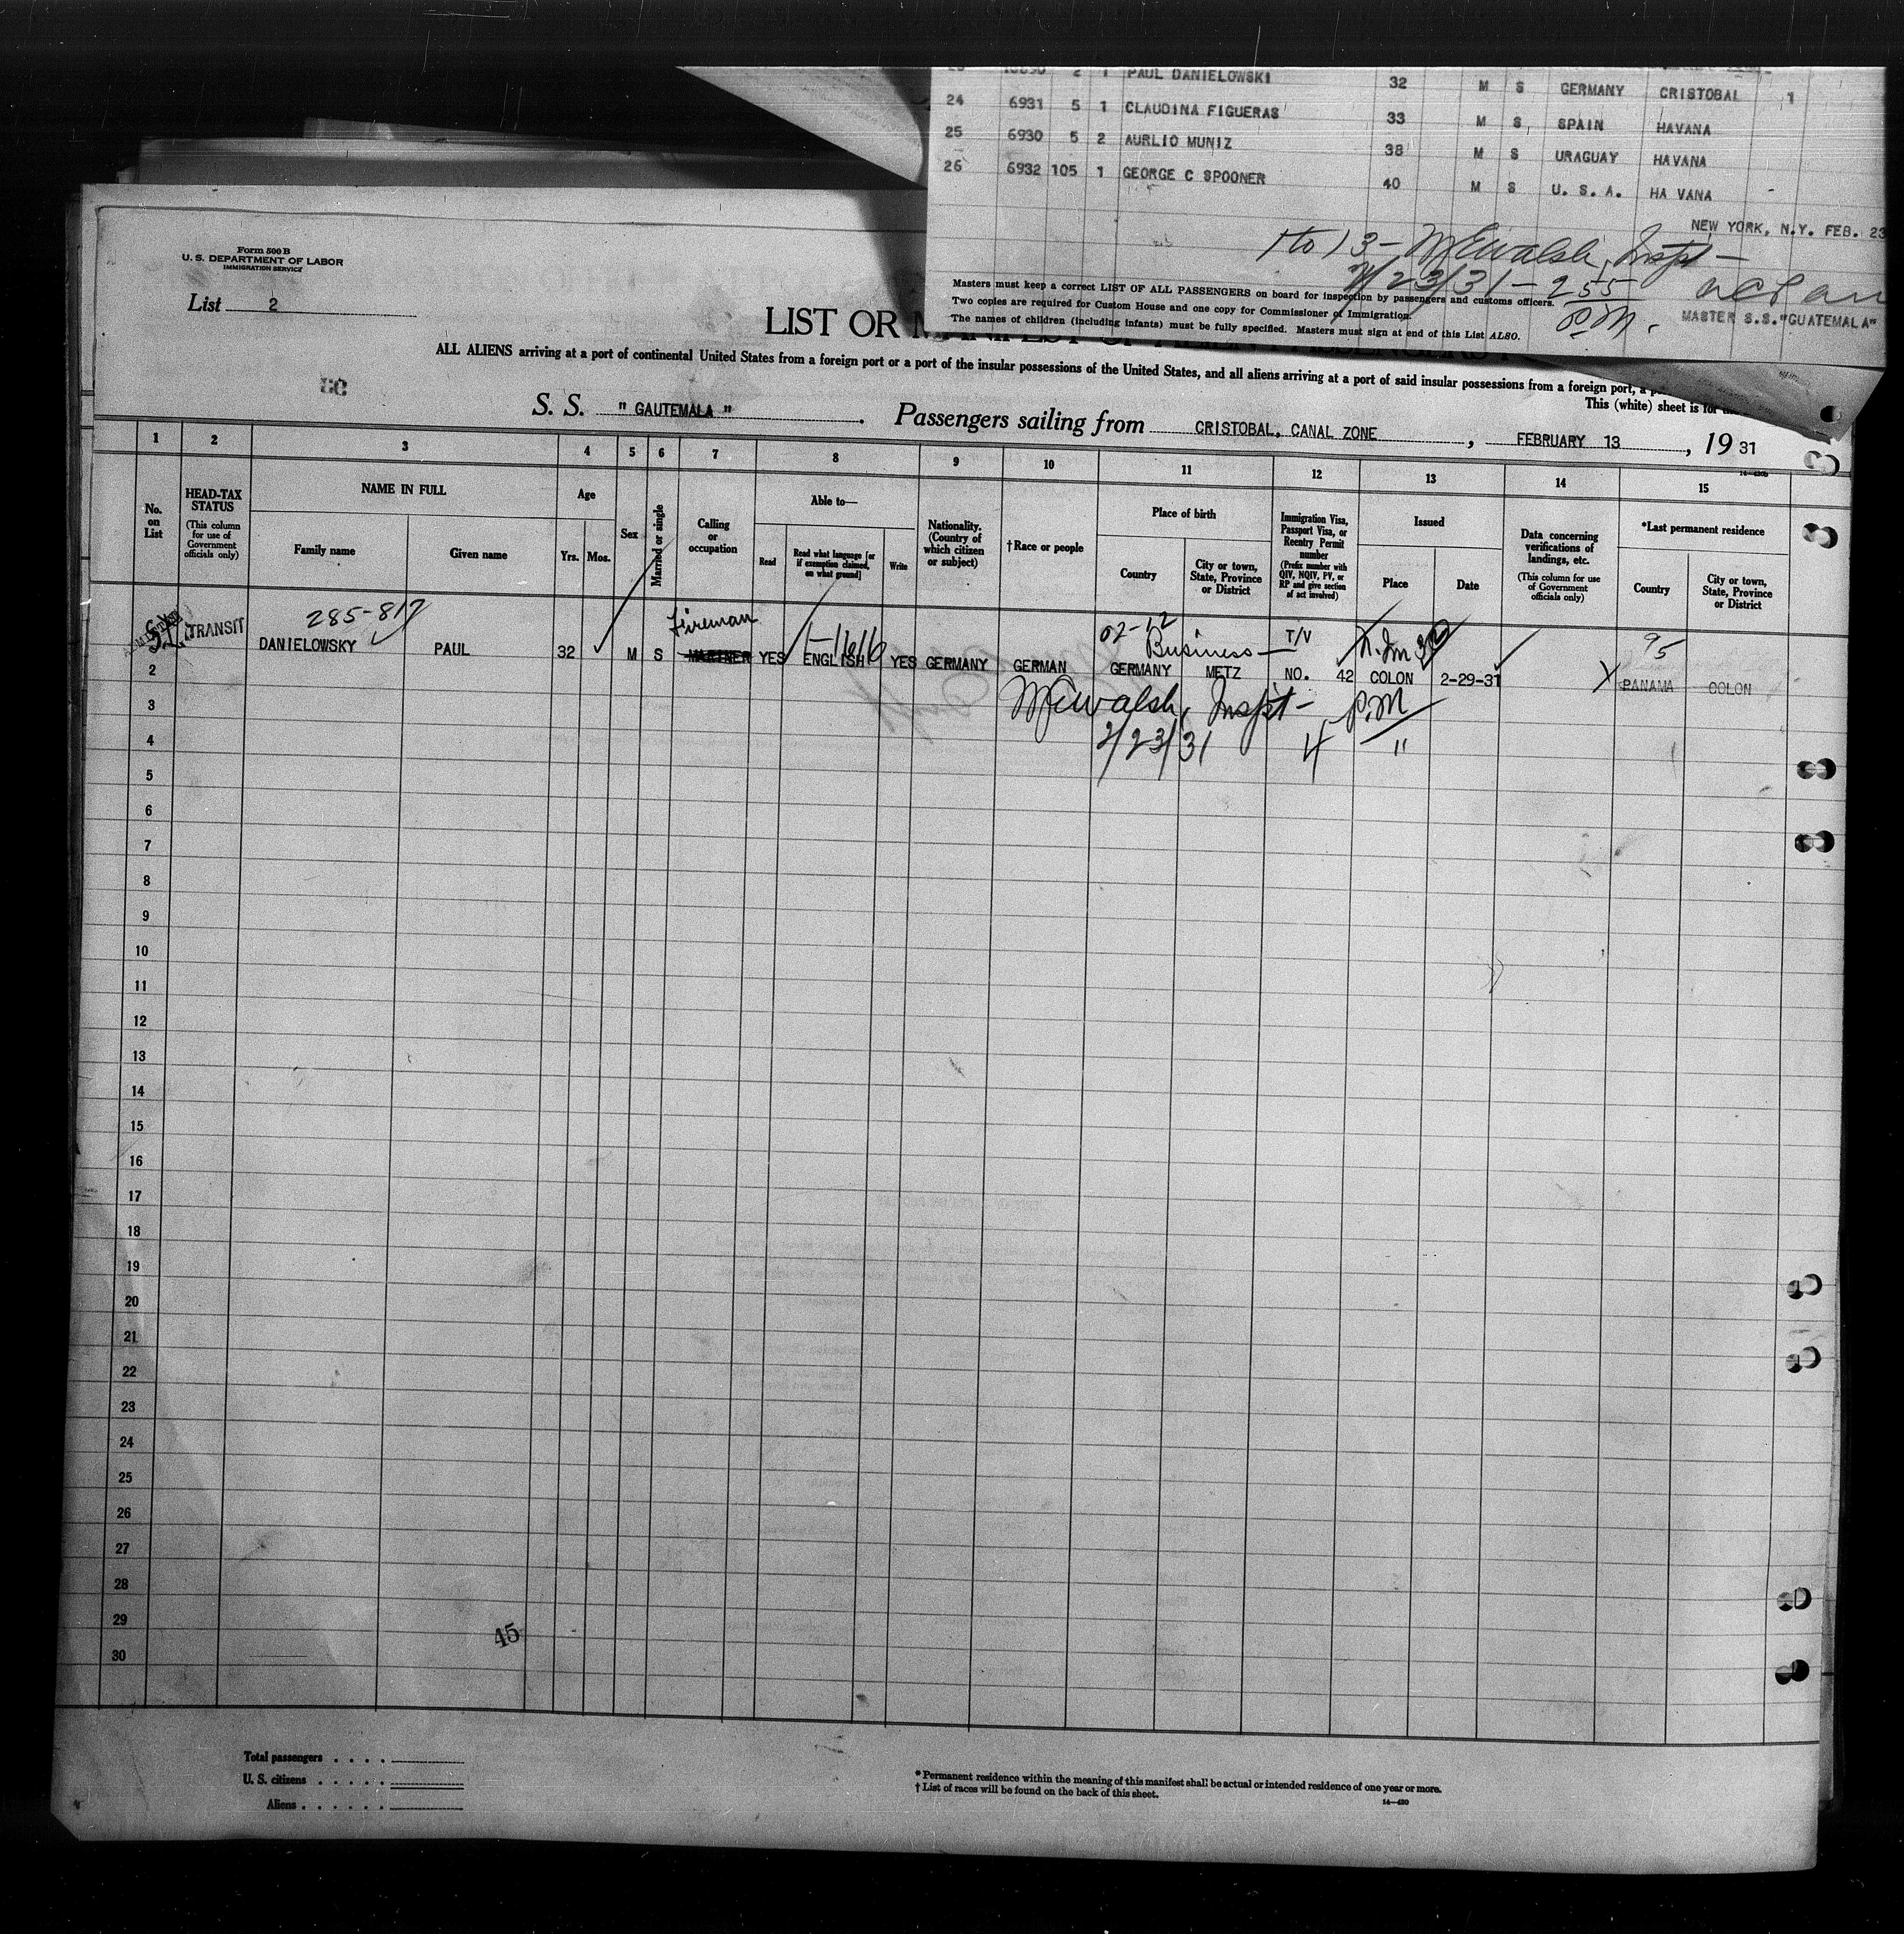 PAUL DANIELOWSKI 32 M S GERMANY CRISTOBAL 1
24 6931 5 1 CLAUDINA FIGUERAS 33 M S SPAIN HAVANA
25 6930 5 2 AURLIO MUNIZ 38 M S URAGUAY HAVANA
26 6932 105 1 GEORGE C SPOONER 40 M S U. S. A. HA VANA
NEW YORK, N.Y. FEB. 23
1 to 13 - McEwalsh, Inspt -
2/23/31 - 2 55
P.M.
Masters must keep a correct LIST OF ALL PASSENGERS on board for inspection by passengers and customs officers.
Two copies are required for Custom House and one copy for Commissioner of Immigration.
The names of children (including infants) must be fully specified. Masters must sign at end of this List ALSO.
MASTER S.S."GUATEMALA"
Form 500 B
U. S. DEPARTMENT OF LABOR
IMMIGRATION SERVICE
List 2
LIST OR
ALL ALIENS arriving at a port of continental United States from a foreign port or a port of the insular possessions of the United States, and all aliens arriving at a port of said insular possessions from a foreign port, a
This (white) sheet is for
S. S. " GAUTEMALA " . Passengers sailing from CRISTOBAL, CANAL ZONE , FEBRUARY 13 , 19 31
1 2 3 4 5 6 7 8 9 10 11 12 13 14 15
No. on List
HEAD-TAX STATUS
(This column for use of Government officials only)
NAME IN FULL
Family name
Given name
Age
Yrs.
Mos.
Sex
Married or single
Calling or occupation
Able to—
Read
Read what language [or if exemption claimed, on what ground]
Write
Nationality. (Country of which citizen or subject)
† Race or people
Place of birth
Country
City or town, State, Province or District
Immigration Visa, Passport Visa, or Reentry Permit number
(Prefix number with QIV, NQIV, PV, or RP and give section of act involved)
Issued
Place
Date
Data concerning verifications of landings, etc.
(This column for use of Government officials only)
*Last permanent residence
Country
City or town, State, Province or District
285-817
Fireman
Business
T/V
95
TRANSIT DANIELOWSKY PAUL 32 M S MARINER YES ENGLISH YES GERMANY GERMAN GERMANY METZ NO. 42 COLON 2-29-31 PANAMA COLON
McEwalsh, Inspt - P.M
2/23/31 4 "
2
3
4
5
6
7
8
9
10
11
12
13
14
15
16
17
18
19
20
21
22
23
24
25
26
27
28
29
30
45
Total passengers
U. S. citizens
Aliens
* Permanent residence within the meaning of this manifest shall be actual or intended residence of one year or more.
† List of races will be found on the back of this sheet.
14—430